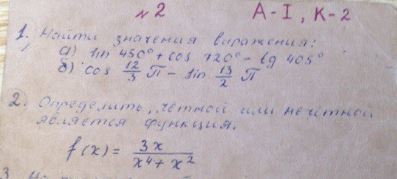 №2 А-I, К-2
1. Найти значения выражения:
а) sin 450° + cos 720° - tg 405°
б) cos 12/3 π - sin 13/2 π
2. Определить, четной или нечётной
является функция.
f(x) = 3x / x⁴ + x²
3.